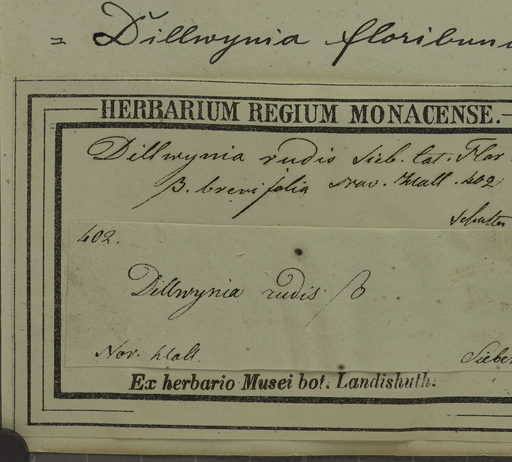 = Dillwynia floribun
HERBARIUM REGIUM MONACENSE.
Dillwynia rudis Sieb. Cat. Flor.
β. brevifolia Nov. Holl. 402
402.
Dillwynia rudis β
Nov. Holl.
Sieber
Ex herbario Musei bot. Landishuth.